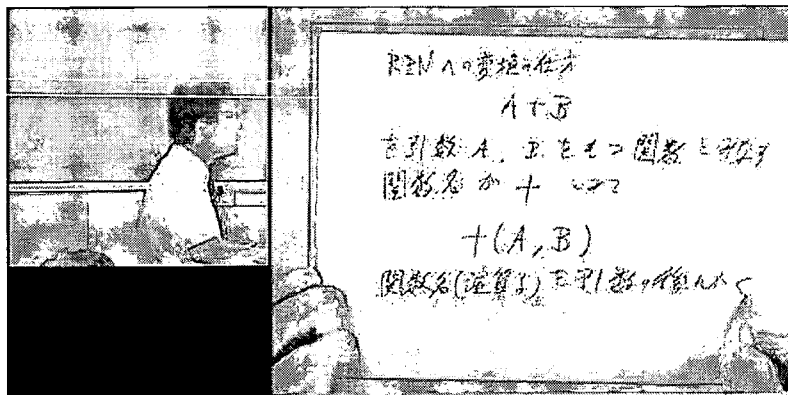 RPNへの変換の仕方
A+B
を引数A、Bをもつ関数とみなす
関数名が + として
+(A,B)
関数名(演算子)を引数の後にかく